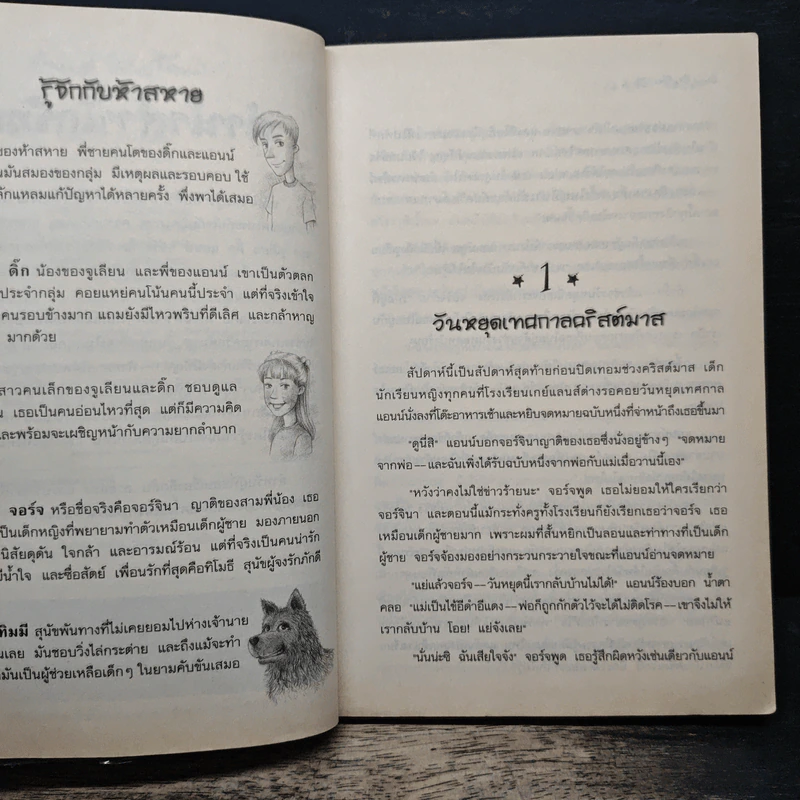 รู้จักกับห้าสหาย
ของห้าสหาย พี่ชายคนโตของดิ๊กและแอนน์
มันสมองของกลุ่ม มีเหตุผลและรอบคอบ ใช้
หลักแหลมแก้ปัญหาได้หลายครั้ง พึ่งพาได้เสมอ
ดิ๊ก น้องของจูเลียน และพี่ของแอนน์ เขาเป็นตัวตลก
ประจำกลุ่ม คอยแหย่คนโน้นคนนี้ประจำ แต่ที่จริงเข้าใจ
คนรอบข้างมาก แถมยังมีไหวพริบที่ดีเลิศ และกล้าหาญ
มากด้วย
สาวคนเล็กของจูเลียนและดิ๊ก ชอบดูแล
เธอเป็นคนอ่อนไหวที่สุด แต่ก็มีความคิด
และพร้อมจะเผชิญหน้ากับความยากลำบาก
จอร์จ หรือชื่อจริงคือจอร์จินา ญาติของสามพี่น้อง เธอ
เป็นเด็กหญิงที่พยายามทำตัวเหมือนเด็กผู้ชาย มองภายนอก
นิสัยดุดัน ใจกล้า และอารมณ์ร้อน แต่ที่จริงเป็นคนน่ารัก
มีน้ำใจ และซื่อสัตย์ เพื่อนรักที่สุดคือทิโมธี สุนัขผู้จงรักภักดี
ทิมมี สุนัขพันทางที่ไม่เคยยอมไปห่างเจ้านาย
เลย มันชอบวิ่งไล่กระต่าย และถึงแม้จะทำ
มันเป็นผู้ช่วยเหลือเด็กๆ ในยามคับขันเสมอ
1
วันหยุดเทศกาลคริสต์มาส
สัปดาห์นี้เป็นสัปดาห์สุดท้ายก่อนปิดเทอมช่วงคริสต์มาส เด็ก
นักเรียนหญิงทุกคนที่โรงเรียนเกย์แลนส์ต่างรอคอยวันหยุดเทศกาล
แอนน์นั่งลงที่โต๊ะอาหารเช้าและหยิบจดหมายฉบับหนึ่งที่จ่าหน้าถึงเธอขึ้นมา
"ดูนี่สิ" แอนน์บอกจอร์จินาญาติของเธอซึ่งนั่งอยู่ข้างๆ "จดหมาย
จากพ่อ--และฉันเพิ่งได้รับฉบับหนึ่งจากพ่อกับแม่เมื่อวานนี้เอง"
"หวังว่าคงไม่ใช่ข่าวร้ายนะ" จอร์จพูด เธอไม่ยอมให้ใครเรียกว่า
จอร์จินา และตอนนี้แม้กระทั่งครูทั้งโรงเรียนก็ยังเรียกเธอว่าจอร์จ เธอ
เหมือนเด็กผู้ชายมาก เพราะผมที่สั้นหยิกเป็นลอนและท่าทางที่เป็นเด็ก
ผู้ชาย จอร์จจ้องมองอย่างกระวนกระวายใจขณะที่แอนน์อ่านจดหมาย
"แย่แล้วจอร์จ--วันหยุดนี้เรากลับบ้านไม่ได้!" แอนน์ร้องบอก น้ำตา
คลอ "แม่เป็นไข้อีดำอีแดง--พ่อก็ถูกกักตัวไว้จะได้ไม่ติดโรค--เขาจึงไม่ให้
เรากลับบ้าน โอย! แย่จังเลย"
"นั่นน่ะซิ ฉันเสียใจจัง" จอร์จพูด เธอรู้สึกผิดหวังเช่นเดียวกับแอนน์